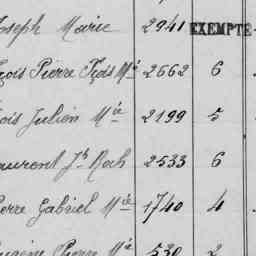 Joseph Marie 2941 EXEMPTÉ
çois Pierre Fçois Mie 2662 6
çois Julien Mie 2199 5
aurent Jh Roch 2533 6
ierre Gabriel Mie 1740 4
ugène Pierre Mie 530 2